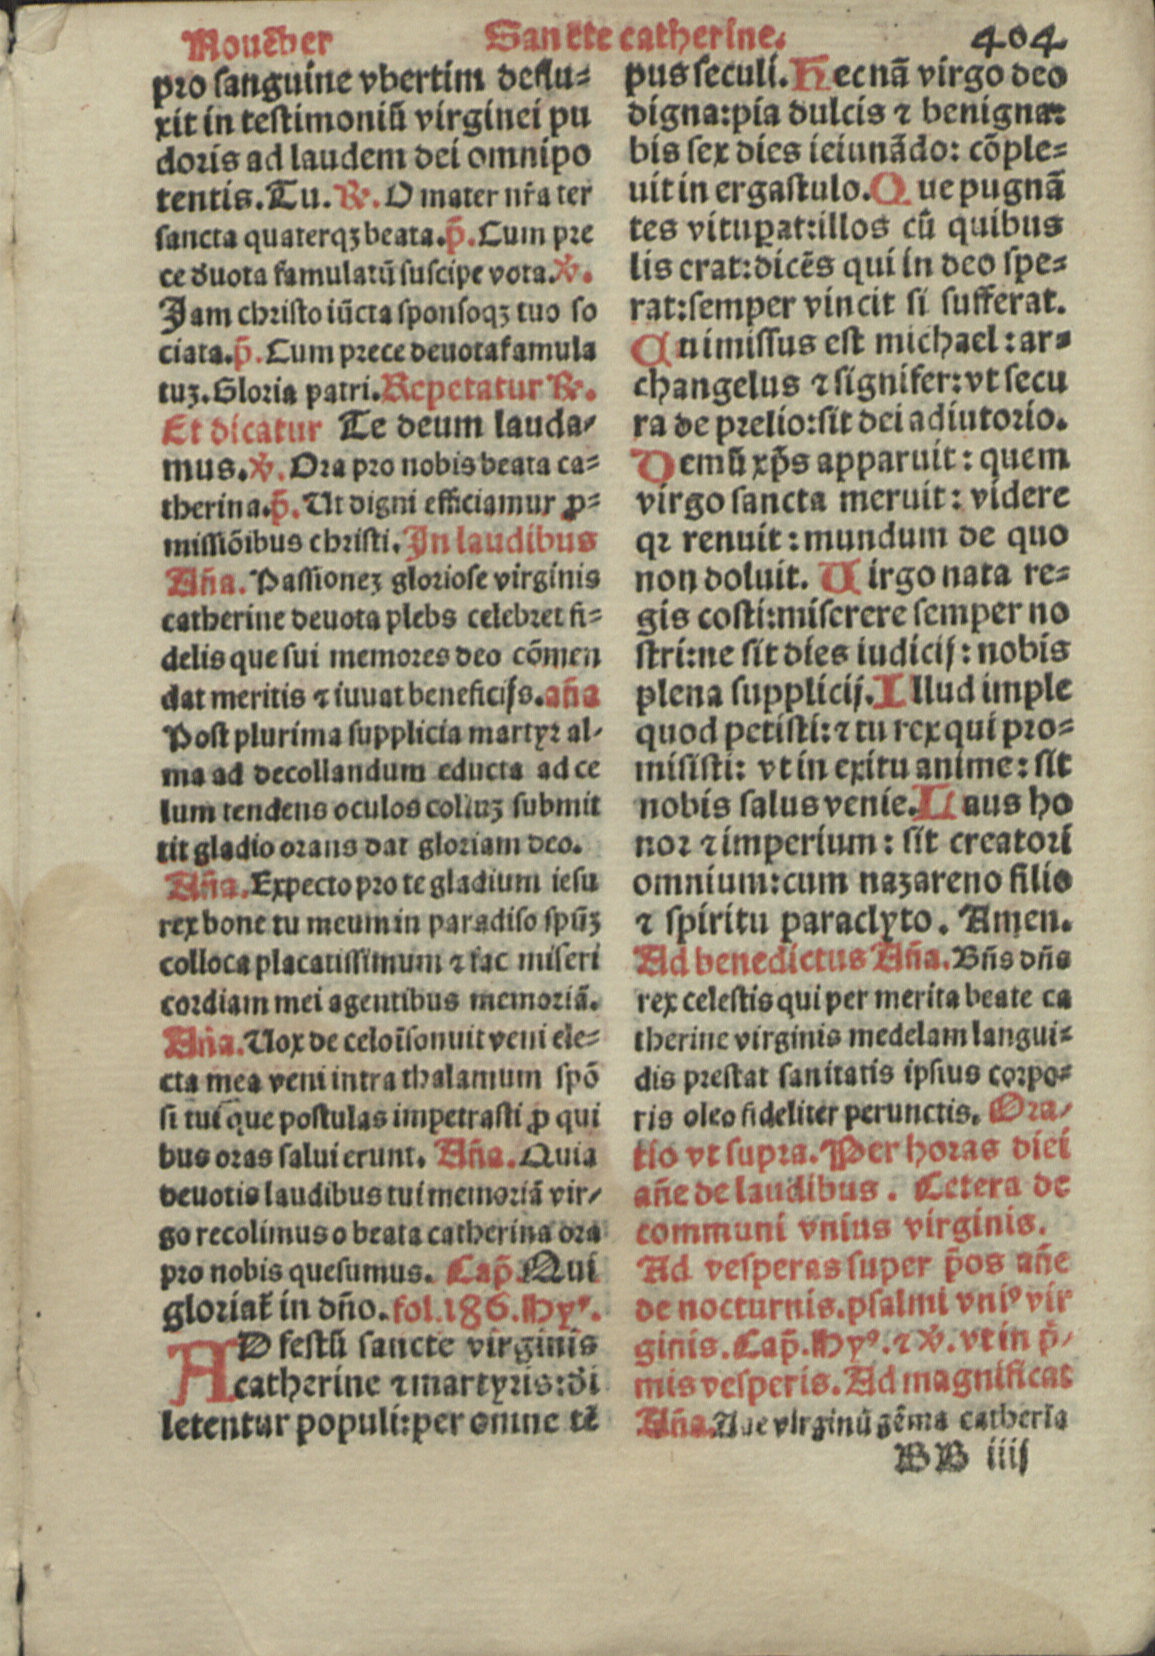 Nouēber Sancte catherine. 404
pro sanguine vbertim deflu=
xit in testimoniū virginei pu
doris ad laudem dei omnipo
tentis. Tu. ℟. O mater nr̄a ter
sancta quaterqꝫ beata. p̄. Cum pre
ce duota famulatū suscipe vota. ℣.
Jam christo iūcta sponsoqꝫ tuo so
ciata. p̄. Cum prece deuota famula
tuꝫ. Gloria patri. Repetatur ℟.
Et dicatur Te deum lauda⸗
mus. ℣. Ora pro nobis beata ca=
therina. p̄. Ut digni efficiamur ꝓ=
missiōibus christi. In laudibus
Añа. Passioneꝫ gloriose virginis
catherine deuota plebs celebret fi=
delis que sui memores deo cōmen
dat meritis ⁊ iuuat beneficijs. aña
Post plurima supplicia martyr al⸗
ma ad decollandum educta ad ce
lum tendens oculos colluꝫ submit
tit gladio orans dat gloriam deo.
Aña. Expecto pro te gladium iesu
rex bone tu meum in paradiso spūꝫ
colloca placatissimum ⁊ fac miseri
cordiam mei agentibus memoriā.
Aña. Uox de celo īsonuit veni ele=
cta mea veni intra thalamum spō
si tui que postulas impetrasti ꝓ qui
bus oras salui erunt. Aña. Quia
deuotis laudibus tui memoriā vir⸗
go recolimus o beata catherina ora
pro nobis quesumus. Cap̄. Qui
gloriat̄ in dño. fol. 186. Hyꝰ.
AD festū sancte virginis
catherine ⁊ martyris: di
letentur populi: per omne tē
pus seculi. Hec nā virgo deo
digna: pia dulcis ⁊ benigna:
bis sex dies ieiunādo: cōple=
uit in ergastulo. Que pugnā
tes vituꝑat: illos cū quibus
lis erat: dicēs qui in deo spe=
rat: semper vincit si sufferat.
Cui missus est michael: ar=
changelus ⁊ signifer: vt secu
ra de prelio: sit dei adiutorio.
Demū xp̄s apparuit: quem
virgo sancta meruit: videre
qꝛ renuit: mundum de quo
non doluit. Uirgo nata re=
gis costi: miserere semper no
stri: ne sit dies iudicij: nobis
plena supplicij. Illud imple
quod petisti: ⁊ tu rex qui pro=
misisti: vt in exitu anime: sit
nobis salus venie. Laus ho
nor ⁊ imperium: sit creatori
omnium: cum nazareno filio
⁊ spiritu paraclyto. Amen.
Ad benedictus Aña. Bñs dñs
rex celestis qui per merita beate ca
therine virginis medelam langui=
dis prestat sanitatis ipsius corpo=
ris oleo fideliter perunctis. Ora⸗
tio vt supra. Per horas diei
añe de laudibus. Cetera de
communi vnius virginis.
Ad vesperas super p̄os añe
de nocturnis. psalmi vniꝰ vir
ginis. Cap̄. Hyꝰ. ⁊ ℣. vt in p̄⸗
mis vesperis. Ad magnificat
Aña. Aue virginū gēma catheria
BB iiij